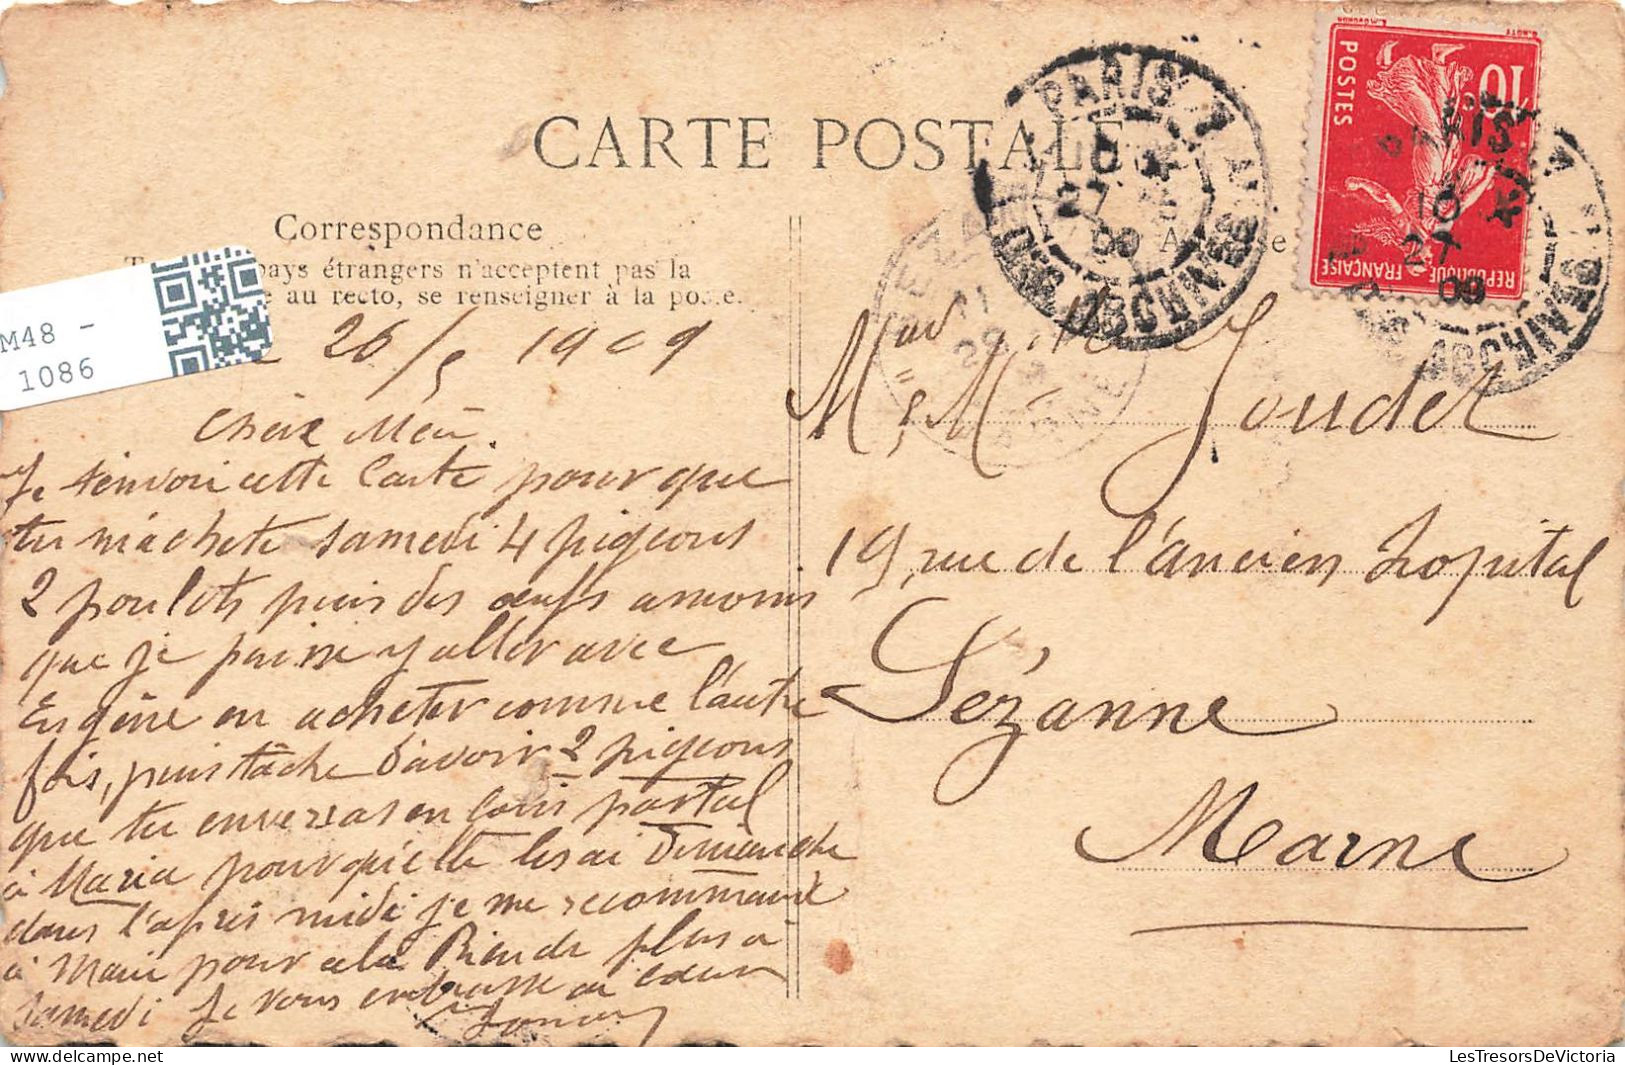 CARTE POSTALE
Correspondance
pays étrangers n'acceptent pas la
au recto, se renseigner à la poste.
M48 -
1086
26/5 1909
Chère Mère.
Je t'envoie cette Carte pour que
tu m'achète samedi 4 pigeons
2 poulets puis des œufs a moins
que je puisse y aller avec
Eugène en acheter comme l'autre
fois, puis tâche d'avoir 2 pigeons
que tu enverras en Colis postal
à Maria pour qu'elle les ai Dimanche
dans l'après midi je me recommande
à Marie pour cela Rien de plus a
samedi Je vous embrasse de cœur
M. Mme Joudet
19, rue de l'ancien hopital
Sézanne
Marne
POSTES
10
REPUBLIQUE FRANÇAISE
PARIS
10
27
09
PARIS
27
09
LesTresorsDeVictoria